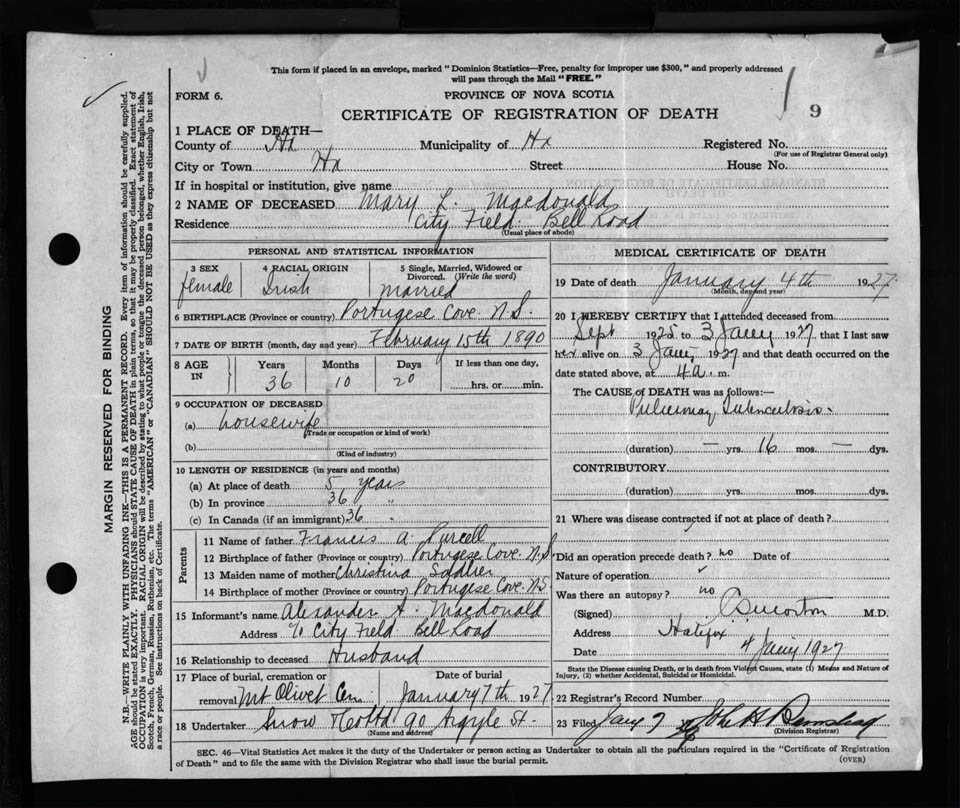 This form if placed in an envelope, marked "Dominion Statistics—Free, penalty for improper use $300," and properly addressed
will pass through the Mail "FREE."
FORM 6.
PROVINCE OF NOVA SCOTIA
9
CERTIFICATE OF REGISTRATION OF DEATH
1 PLACE OF DEATH—
County of Hx Municipality of Hx Registered No.
(For use of Registrar General only)
City or Town Hx Street House No.
If in hospital or institution, give name
2 NAME OF DECEASED Mary L. Macdonald
Residence City Field. Bell Road
(Usual place of abode)
PERSONAL AND STATISTICAL INFORMATION
3 SEX
female
4 RACIAL ORIGIN
Irish
5 Single, Married, Widowed or
Divorced. (Write the word)
married
6 BIRTHPLACE (Province or country) Portugese Cove. N.S.
7 DATE OF BIRTH (month, day and year) February 15th 1890
8 AGE
IN
Years
36
Months
10
Days
20
If less than one day,
hrs. or min.
9 OCCUPATION OF DECEASED
(a) housewife
(Trade or occupation or kind of work)
(b)
(Kind of industry)
10 LENGTH OF RESIDENCE (in years and months)
(a) At place of death 5 years
(b) In province 36 "
(c) In Canada (if an immigrant) 36 "
Parents
11 Name of father Francis A. Purcell
12 Birthplace of father (Province or country) Portugese Cove. N.S.
13 Maiden name of mother Christina
14 Birthplace of mother (Province or country) Portugese Cove. N.S
15 Informant's name Alexander A. Macdonald
Address % City Field. Bell Road
16 Relationship to deceased Husband
17 Place of burial, cremation or
removal Mt Olivet Cem
Date of burial
January 7th 1927
18 Undertaker Snow & Co Ltd 90 Argyle St.
(Name and address)
MEDICAL CERTIFICATE OF DEATH
19 Date of death January 4th 1927.
(Month, day and year)
20 I HEREBY CERTIFY that I attended deceased from
Sept 1925 to 3 Jany 1927 that I last saw
her alive on 3 Jany 1927 and that death occurred on the
date stated above, at 4 a. m.
The CAUSE OF DEATH was as follows:—
Pulmonary Tuberculosis.
(duration) — yrs. 16 mos. — dys.
CONTRIBUTORY
(duration) yrs. mos. dys.
21 Where was disease contracted if not at place of death?
Did an operation precede death? no Date of
Nature of operation
Was there an autopsy? no
(Signed) M.D.
Address Halifax
Date 4 Jany 1927
State the Disease causing Death, or in death from Violent Causes, state (1) Means and Nature of
Injury, (2) whether Accidental, Suicidal or Homicidal.
22 Registrar's Record Number
23 Filed Jany 7
(Division Registrar)
SEC. 46—Vital Statistics Act makes it the duty of the Undertaker or person acting as Undertaker to obtain all the particulars required in the "Certificate of Registration
of Death" and to file the same with the Division Registrar who shall issue the burial permit.
(OVER)
MARGIN RESERVED FOR BINDING
N.B.—WRITE PLAINLY WITH UNFADING INK—THIS IS A PERMANENT RECORD. Every item of information should be carefully supplied.
AGE should be stated EXACTLY. PHYSICIANS should STATE CAUSE OF DEATH in plain terms, so that it may be properly classified. Exact statement of
OCCUPATION is very important. RACIAL ORIGIN will be described by stating to what people or tongue the deceased person belonged, whether English, Irish,
Scotch, French, German, Russian, Ruthenian, etc. The terms "AMERICAN" or "CANADIAN" SHOULD NOT BE USED as they express citizenship but not
a race or people. See instructions on back of Certificate.